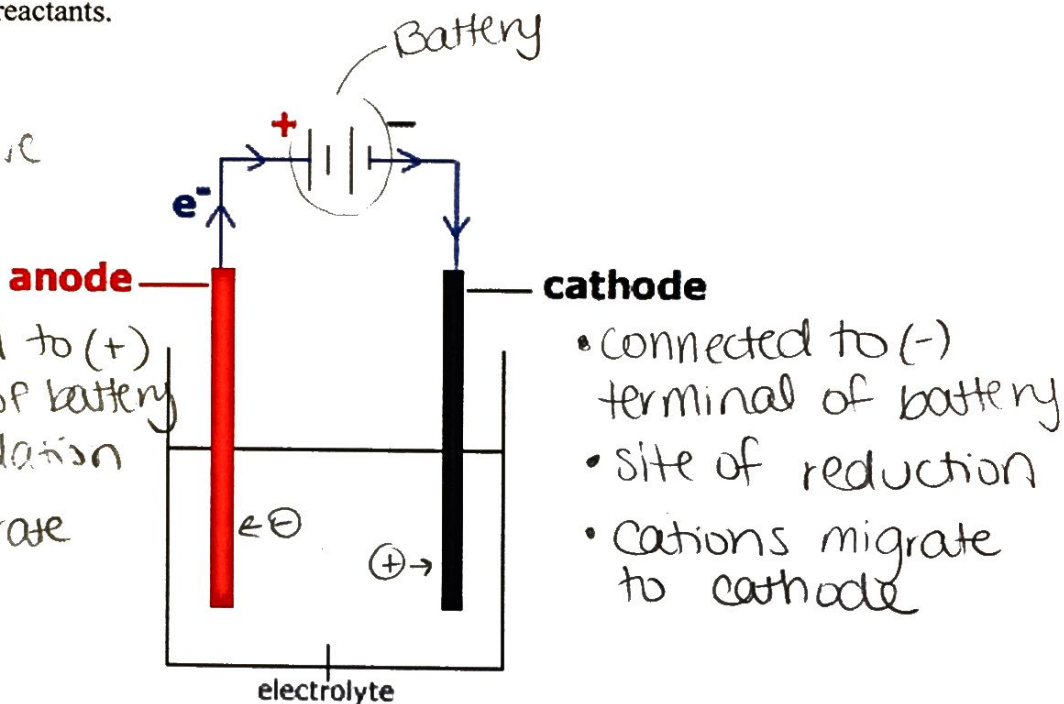 reactants.
Battery
+ −
e⁻
anode
cathode
to (+)
of battery
• connected to (-)
terminal of battery
• site of reduction
← ⊖
⊕ →
• cations migrate
to cathode
electrolyte